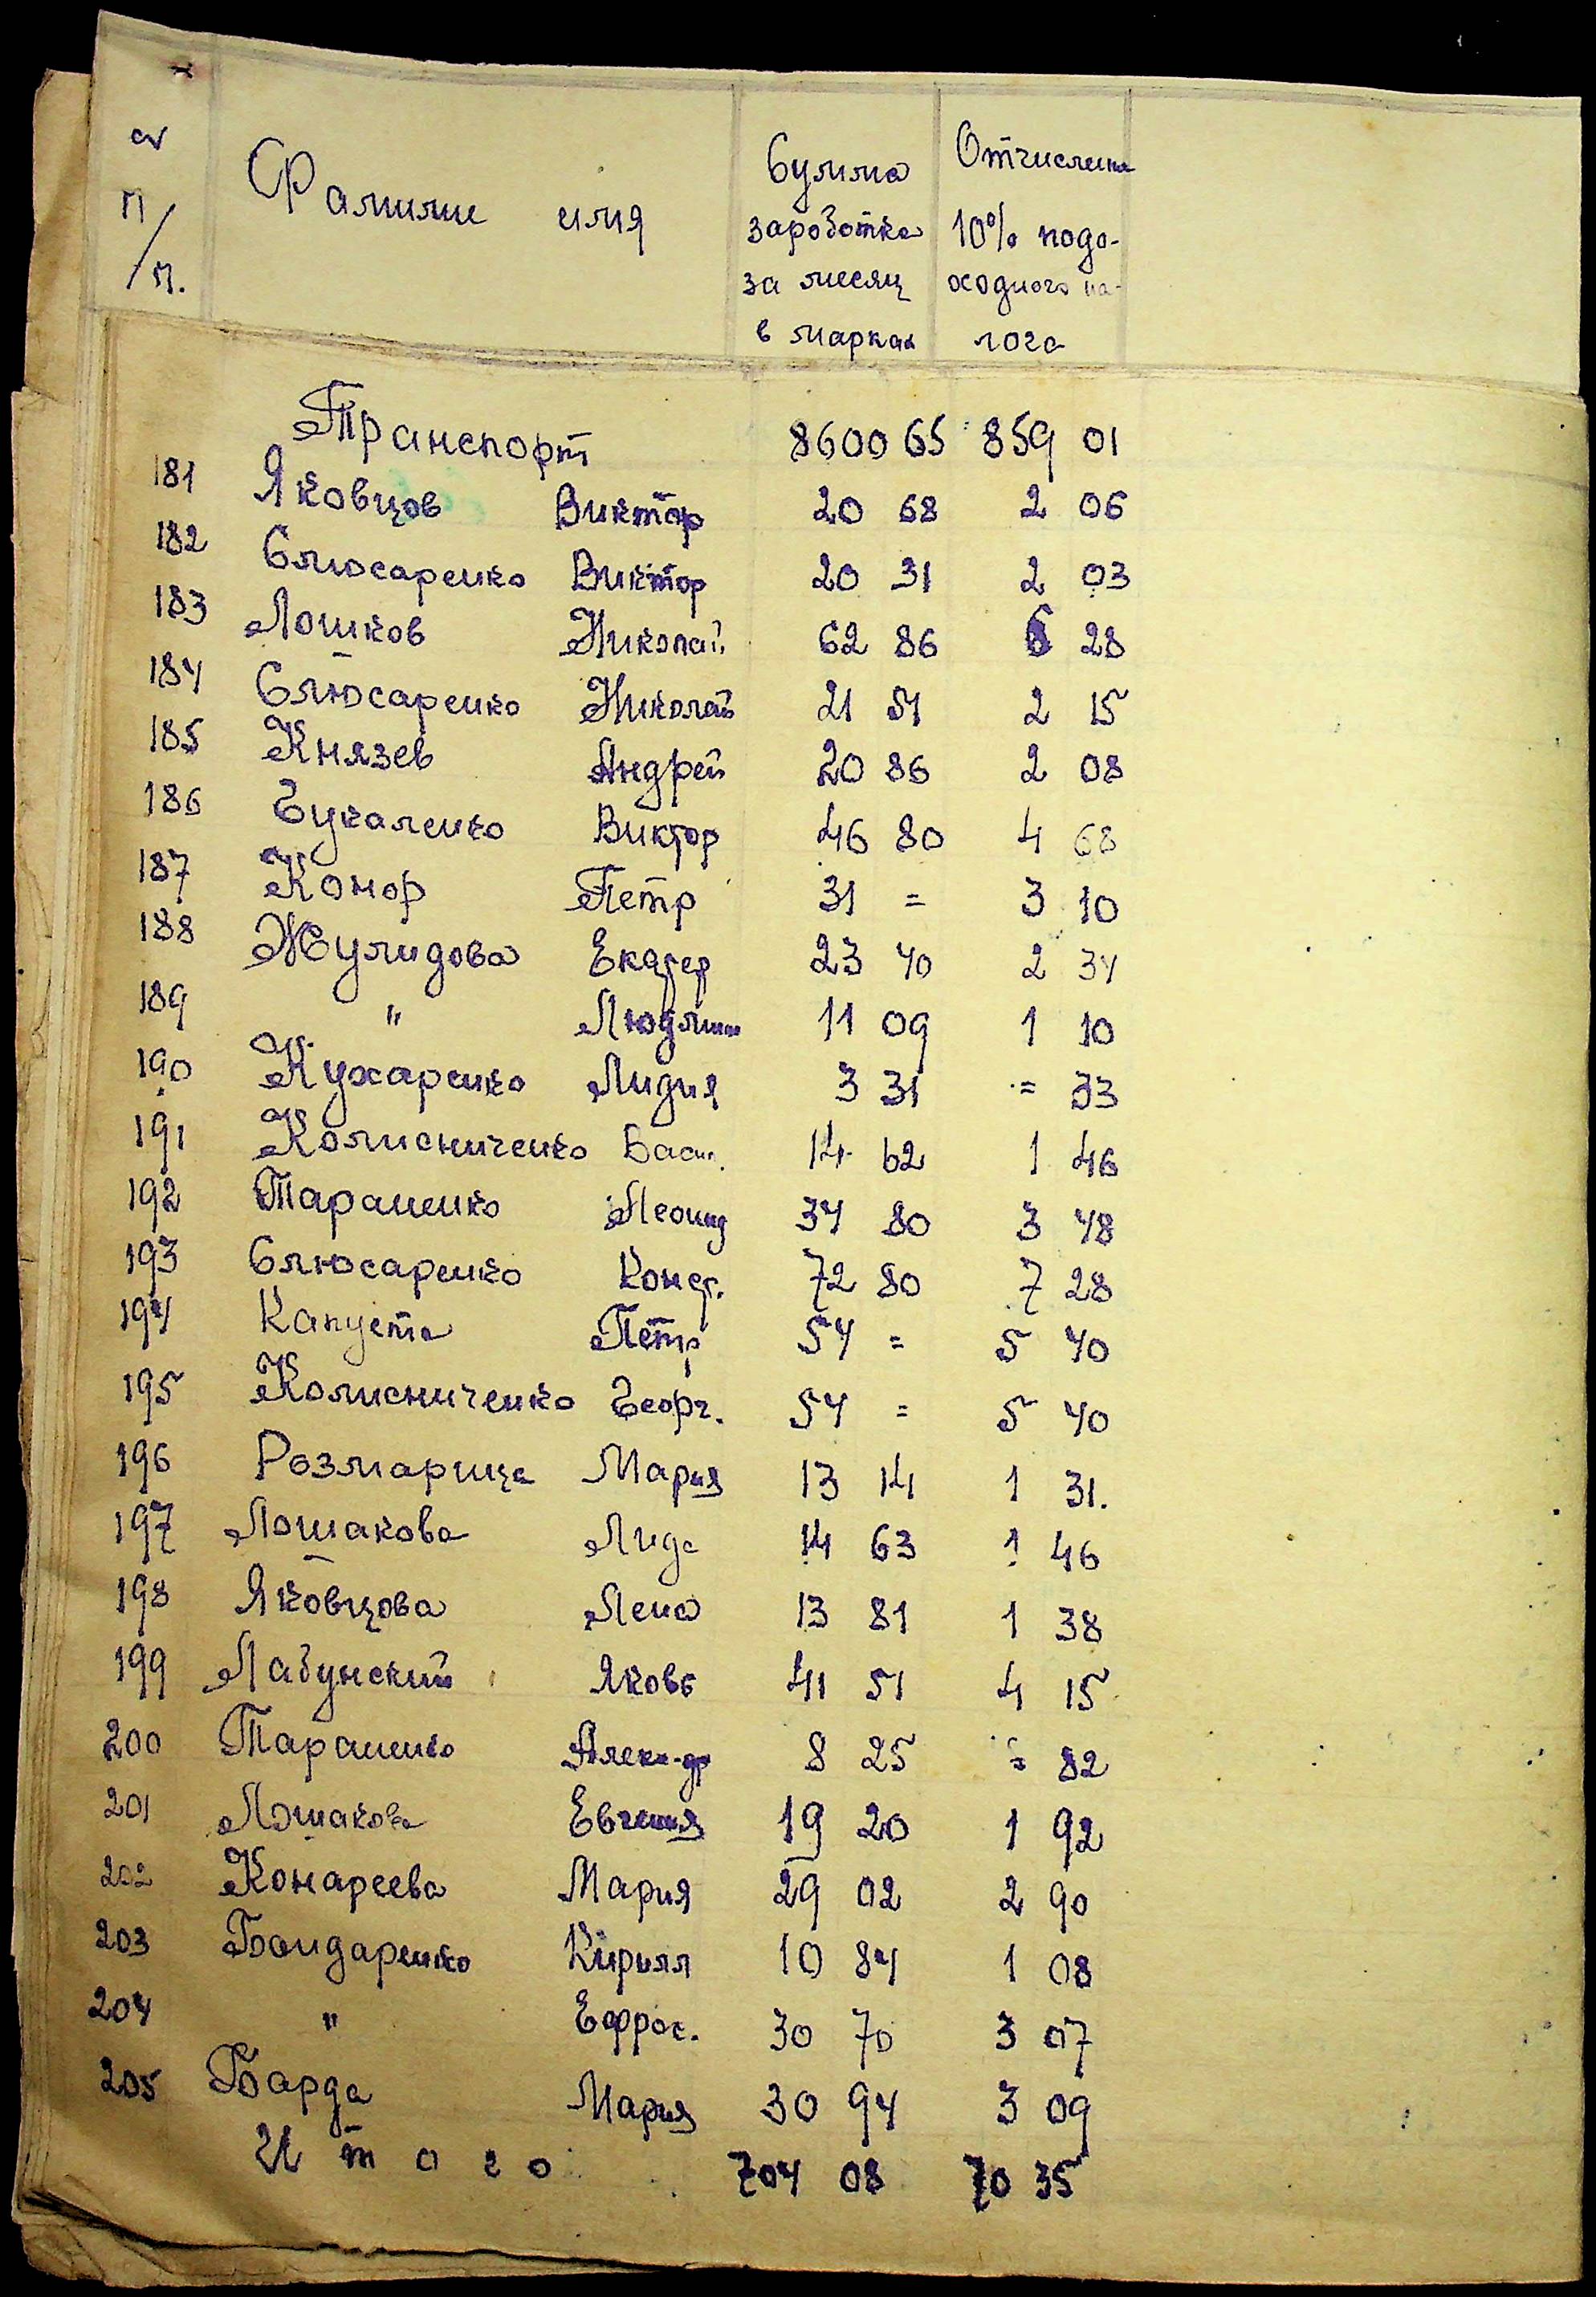 № п/п.
Фамилие имя
Сумма заработка за месяц в марках
Отчисления 10% подоходного налога
Транспорт 8600 65 859 01
181 Яковцов Виктор 20 68 2 06
182 Слюсаренко Виктор 20 31 2 03
183 Лошков Николай 62 86 6 28
184 Слюсаренко Николай 21 51 2 15
185 Князев Андрей 20 86 2 08
186 Гукаленко Виктор 46 80 4 68
187 Комор Петр 31 = 3 10
188 Жулидова Екатер 23 40 2 34
189 " Людмила 11 09 1 10
190 Кухаренко Лидия 3 31 = 33
191 Колисниченко Васил. 14 62 1 46
192 Тараненко Леонид 34 80 3 48
193 Слюсаренко Конст. 72 80 7 28
194 Капуста Петр 54 = 5 40
195 Колисниченко Георг. 54 = 5 40
196 Розмарица Мария 13 14 1 31.
197 Лошакова Лида 14 63 1 46
198 Яковцова Лена 13 81 1 38
199 Лабунский Яковъ 41 51 4 15
200 Тараненко Алекс-др 8 25 = 82
201 Лошакова Евгения 19 20 1 92
202 Конареева Мария 29 02 2 90
203 Бондаренко Кирилл 10 84 1 08
204 " Ефрос. 30 70 3 07
205 Барда Мария 30 94 3 09
Итого 704 08 70 35